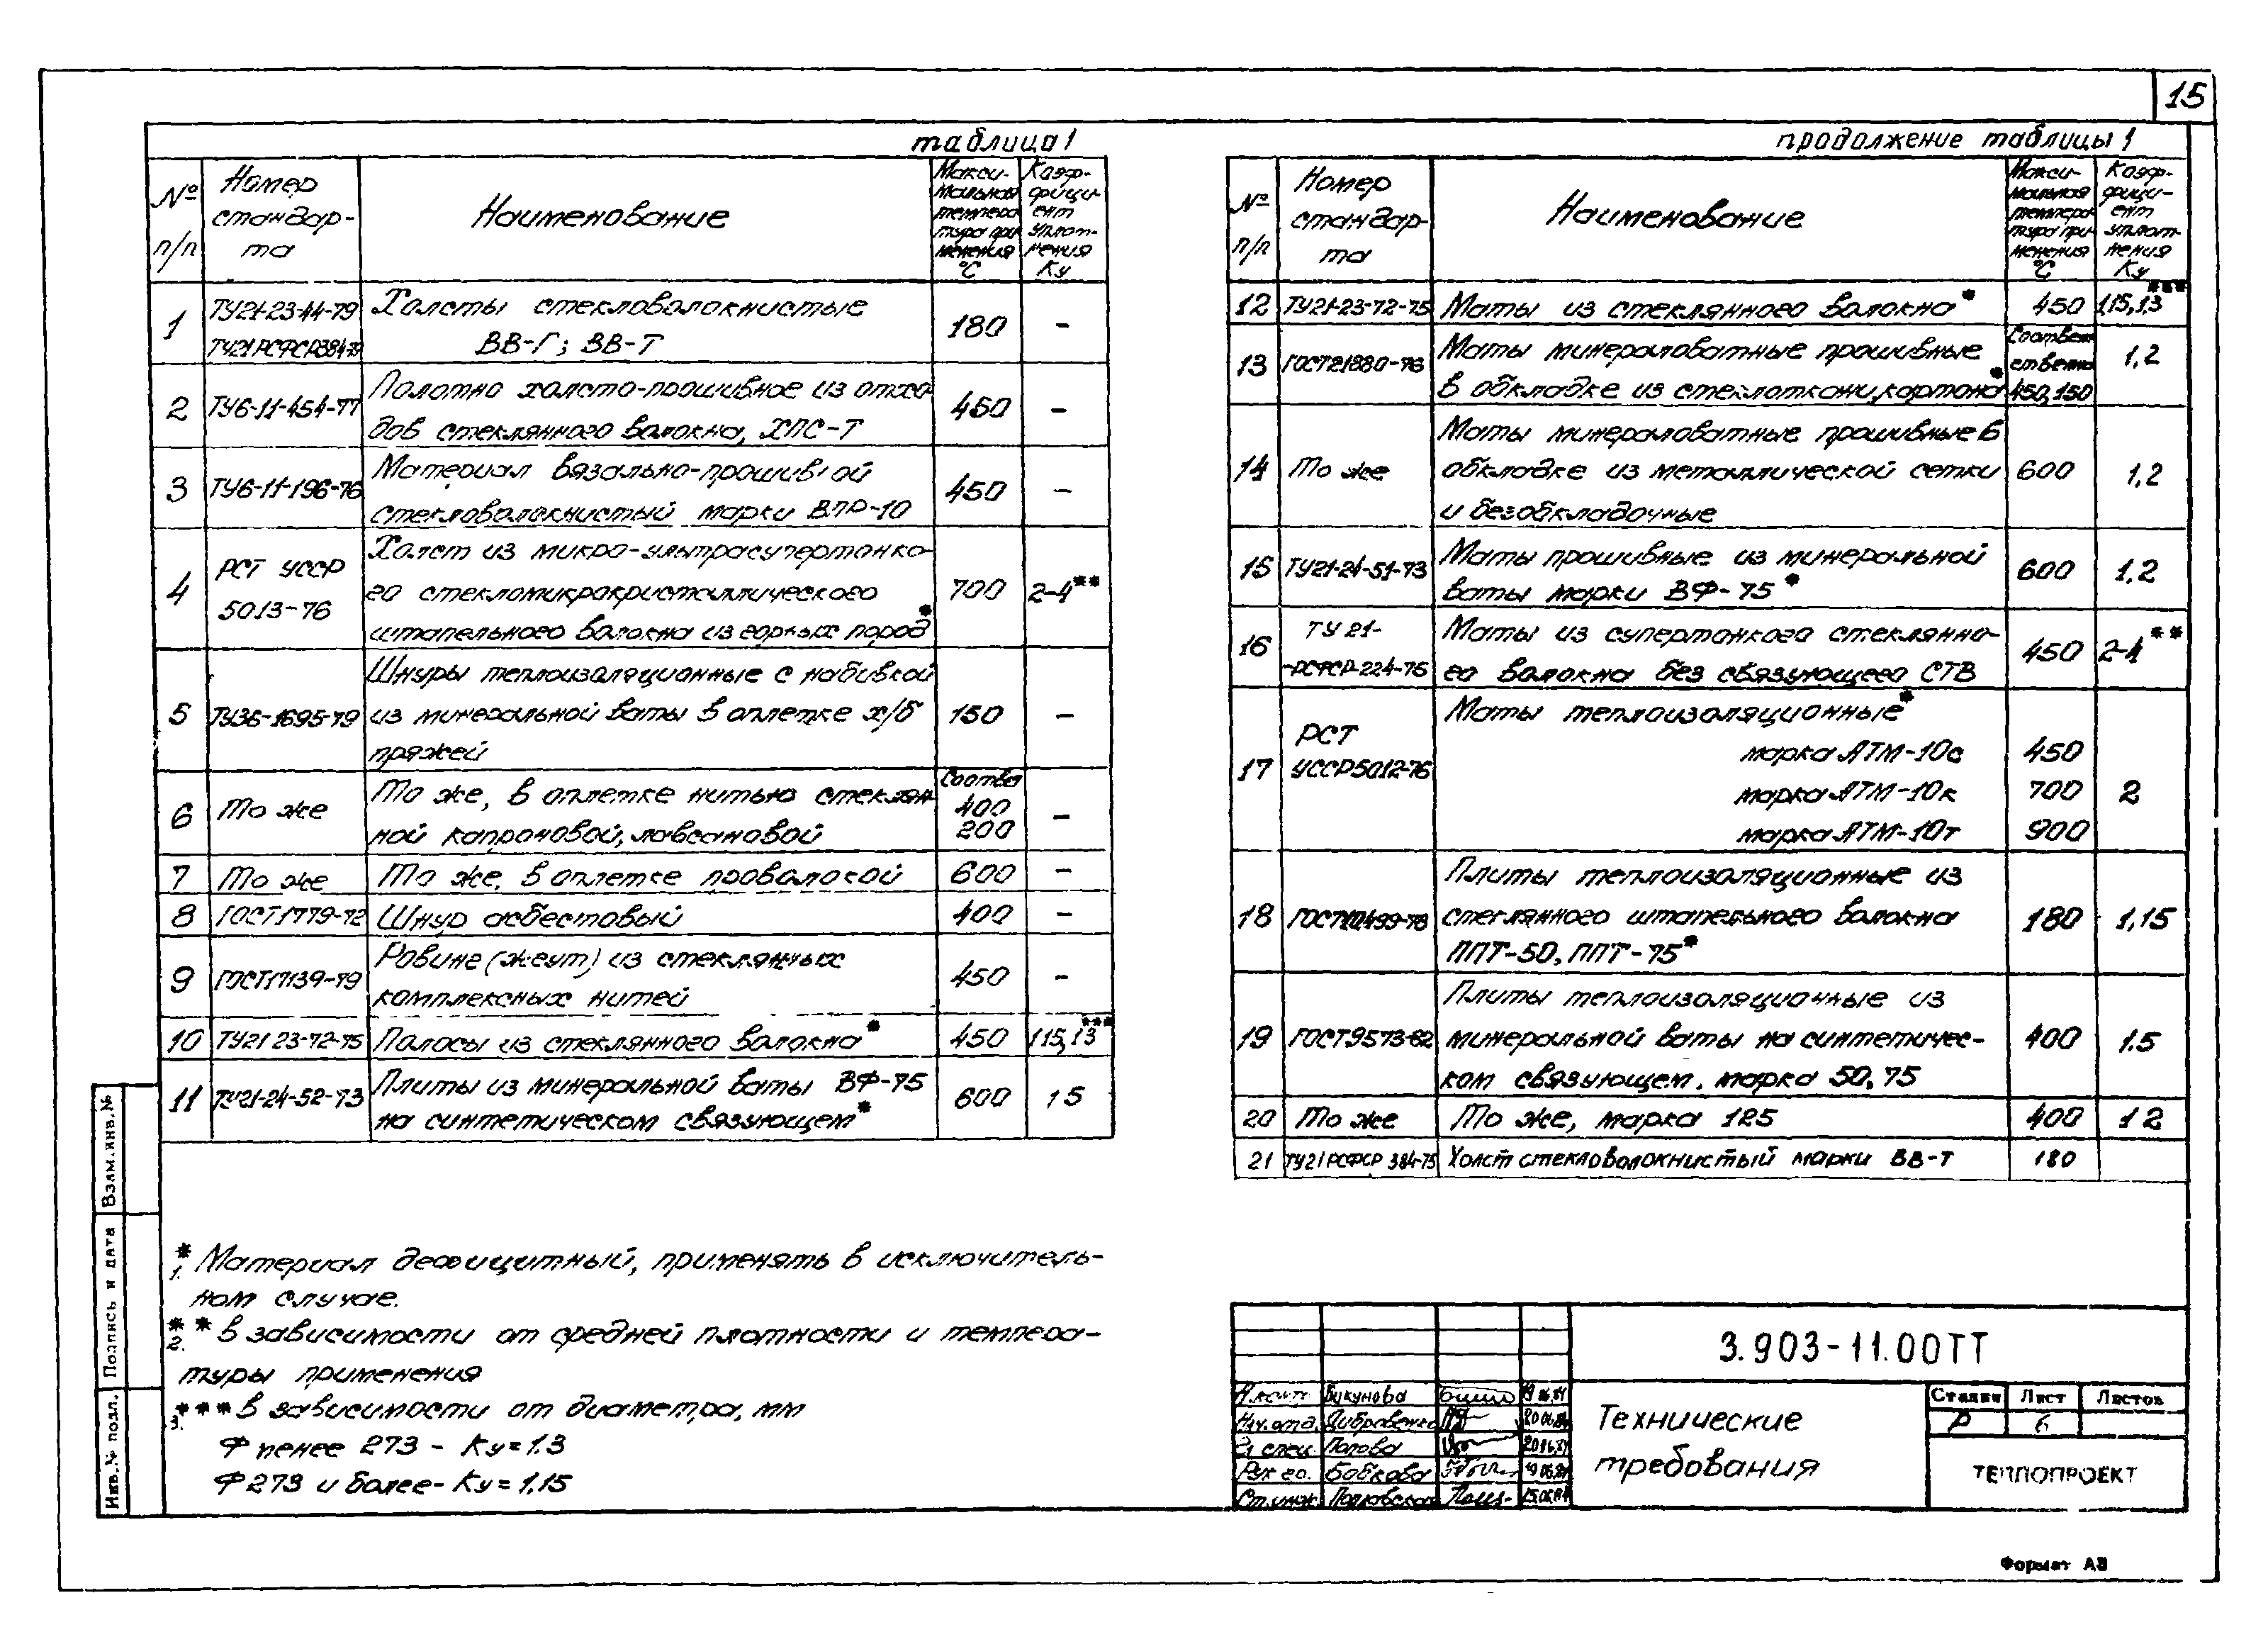 15
таблица 1
№ п/п
Номер стандарта
Наименование
Максимальная температура применения °С
Коэффициент уплотнения Ку
1
ТУ21-23-44-79
ТУ21 РСФСР
Холсты стекловолокнистые
ВВ-Г; ВВ-Т
180
–
2
ТУ6-11-454-77
Полотно холсто-прошивное из отхо-
дов стеклянного волокна, ХПС-Т
450
–
3
ТУ6-11-196-76
Материал вязально-прошивной
стекловолокнистый марки ВПР-10
450
–
4
РСТ УССР
5013-76
Холст из микро-ультрасупертонко-
го стекломикрокристаллического
штапельного волокна из горных пород*
700
2-4**
5
ТУ36-1695-79
Шнуры теплоизоляционные с набивкой
из минеральной ваты в оплетке х/б
пряжей
150
–
6
То же
То же, в оплетке нитью стеклян
ной капроновой, лавсановой
Соотв
400
200
–
7
То же
То же, в оплетке проволокой
600
–
8
ГОСТ1779-72
Шнур асбестовый
400
–
9
ГОСТ17139-79
Ровинг (жгут) из стеклянных
комплексных нитей
450
–
10
ТУ21 23-72-75
Полосы из стеклянного волокна*
450
1 15, 1 3***
11
ТУ21-24-52-73
Плиты из минеральной ваты ВФ-75
на синтетическом связующем*
600
1 5
*
1. Материал дефицитный, применять в исключитель-
ном случае.
**
2. в зависимости от средней плотности и темпера-
туры применения
***
3. в зависимости от диаметра, мм
Ф менее 273 - Ку = 1.3
Ф 273 и более - Ку = 1,15
продолжение таблицы 1
№ п/п
Номер стандарта
Наименование
Максимальная температура применения °С
Коэффициент уплотнения Ку
12
ТУ21-23-72-75
Маты из стеклянного волокна*
450
1,15, 1,3***
13
ГОСТ21880-76
Маты минераловатные прошивные
в обкладке из стеклоткани, картона*
Соответ
ственно
450, 150
1,2
14
То же
Маты минераловатные прошивные в
обкладке из металлической сетки
и безобкладочные
600
1,2
15
ТУ21-24-51-73
Маты прошивные из минеральной
ваты марки ВФ-75*
600
1,2
16
ТУ 21-
-РСФСР-224-75
Маты из супертонкого стеклянно-
го волокна без связующего СТВ
450
2-4**
17
РСТ
УССР5012-76
Маты теплоизоляционные*
марка АТМ-10с
450
марка АТМ-10к
700
2
марка АТМ-10т
900
18
ГОСТ10499-78
Плиты теплоизоляционные из
стеклянного штапельного волокна
ППТ-50, ППТ-75*
180
1,15
19
ГОСТ9573-82
Плиты теплоизоляционные из
минеральной ваты на синтетичес-
ком связующем, марка 50, 75
400
1.5
20
То же
То же, марка 125
400
1 2
21
ТУ21 РСФСР 384-75
Холст стекловолокнистый марки ВВ-Т
180
3.903-11.00ТТ
Н.контр. Букунова
Нач.отд.
Гл. спец. Попова
Рук гр. Бобкова
Ст.инж.
Технические
требования
Стадия Лист Листов
Р 6
ТЕПЛОПРОЕКТ
Формат А3
Взам.инв.№
Подпись и дата
Инв.№ подл.